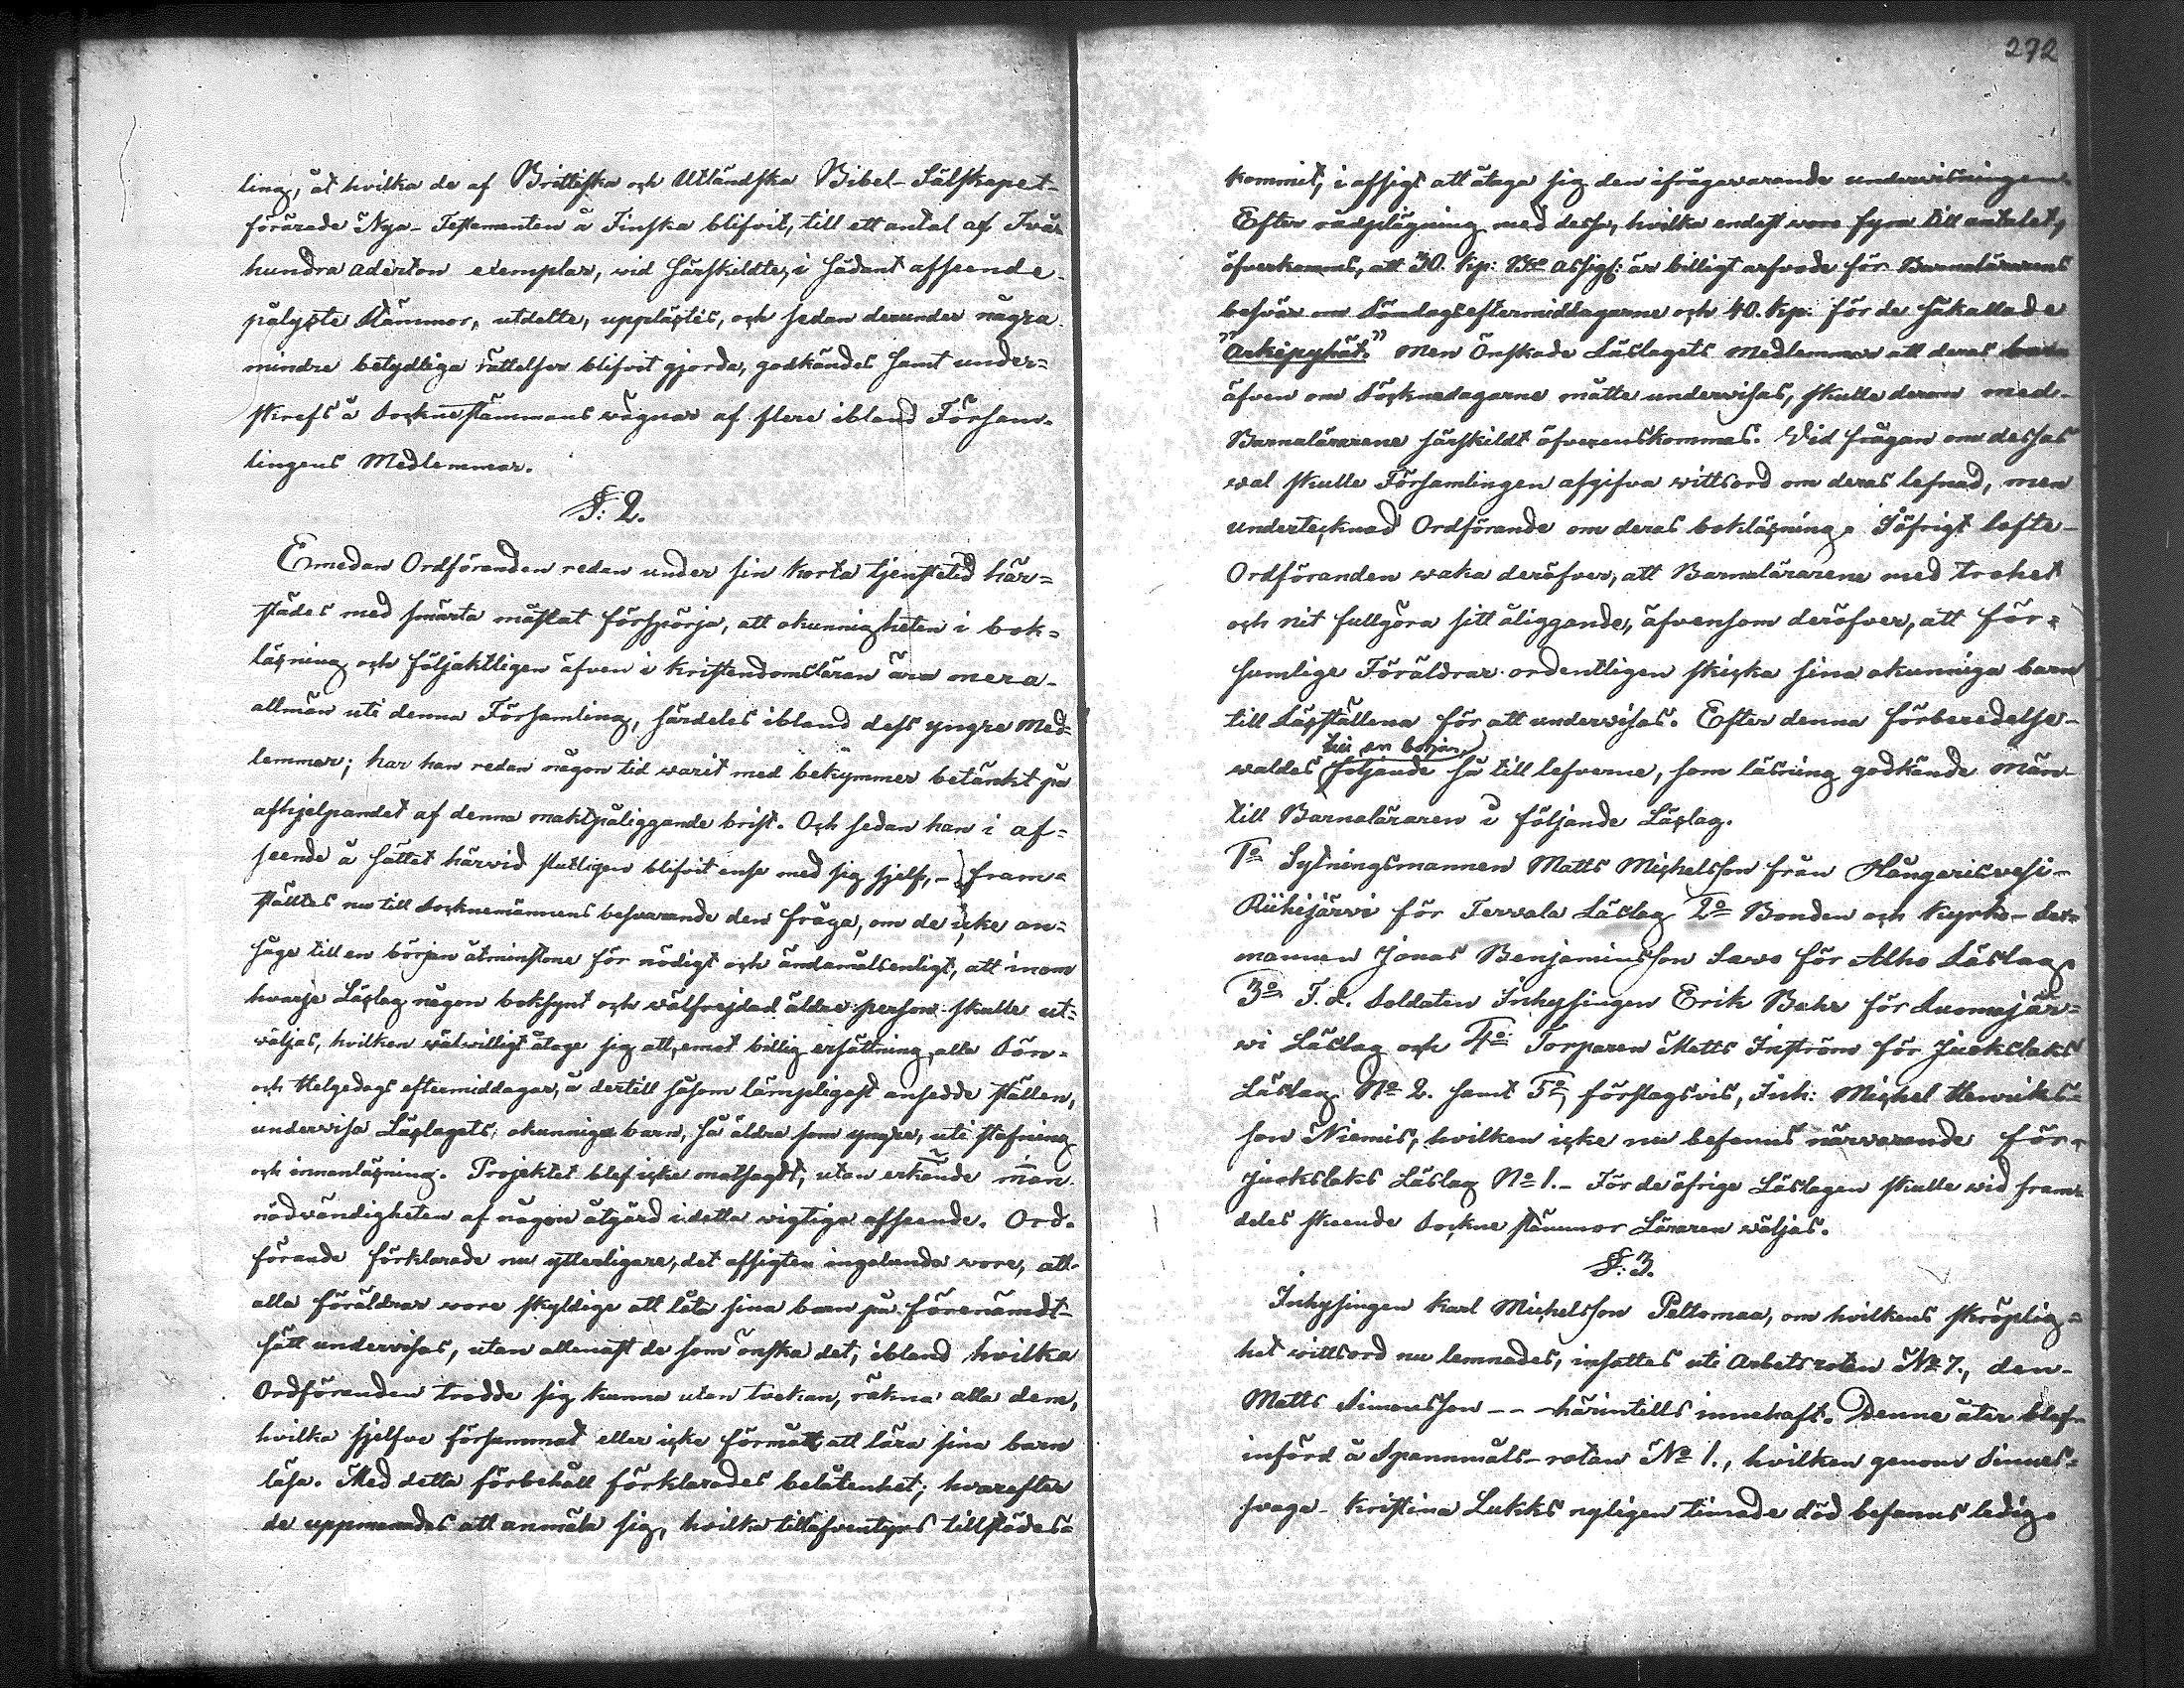 ling, åt hvilka de af Brittiska och Utländska Bibel-Sälskapet-
förärade Nya-Testamenten å Finska blifvit, till ett antal af Två
hundra aderton exemplar, vid särskildte, i sådant afseende
pålyste stämmor, utdelte, upplästes, och sedan derunder några
mindre betydliga rättelser blifvit gjorda, godkändes samt under=
skrefs å Sockne stämmans wägnar af flere ibland Försam-
lingens Medlemmar.
§: 2.
Emedan Ordföranden redan under sin korta tjenstetid här=
städes med smärta måstat försporja, att okunnigheten i bok=
läsning och följaktligen äfven i kristendomsläran äro mera-
allmän uti denna Församling, särdeles ibland dess yngre Med-
lemmar; har han redan någon tid warit med bekymmer betänkt på
afhjelpandet af denna maktpåliggande brist. Och sedan han i af=
seende å sättet härvid slutligen blifvit ense med sig sjelf, - fram=
ställtes nu till Socknemännens besvarande den fråga, om de icke an=
såge till en början åtminstone för nödigt och ändamålsenligt, att inom
hvarje Läslag någon boksynt och wälfrejdad äldre person skulle ut=
wäljas, hvilken wälwilligt åtoge sig att, emot billig ersättning, alla Sön-
och Helgedags eftermiddagar, å dertill såsom lämpligast ansedde ställen,
underwisa Läslagets okunniga barn, så äldre som yngre, uti stafning
och innanläsning. Projektet blef icke motsagdt, utan erkände man
nödvändigheten af någon åtgärd i detta wigtiga afseende. Ord-
förande förklarade nu ytterligare, det afsigten ingalunda vore, att
alla föräldrar wore skyldige att låta sina barn på förenämdt
sätt underwisas, utan allenast de som önska det, ibland hvilka
Ordföranden trodde sig kunna utan tvekan, räkna alla dem,
hvilka sjelfve försummat eller icke förmått att lära sina barn
läsa. Med detta förbehåll förklarades belåtenhet; hvarefter
de uppmanades att anmäla sig, hvilka tilläfventyrs tillstädes=
272
kommit, i afsigt att åtaga sig den ifrågawarande underwisningen.
Efter rådplägning med dessa, hvilka endast woro fyra till antalet,
öfverkoms, att 30. kp: Bko Assign: är billigt arfvode för Barnalärarens
besvär om Söndagseftermiddagarne och 40. kp: för de såkallade
"Arkipyhät." Men Önskade Läslagets medlemmar att deras barn
äfven om Söcknedagarne måtte underwisas, skulle derom med-
Barnalärarene särskildt öfverenskommas. Vid frågan om dessas
wal skulle Församlingen afgifva wittsord om deras lefnad, men
undertecknad Ordförande om deras bokläsning. I öfrigt lofte-
Ordföranden waka deröfver, att Barnalärarene med trohet
och nit fullgöra sitt åliggande, äfvensom deröfver, att för=
sumlige Föräldrar ordentligen skicka sina okunniga barn
till Läsställena för att underwisas. Efter denna förberedelse-
till en början
waldes följande så till lefverne, som läsning godkände män
till Barnaläraren i följande Läslag.
1o Sytningsmannen Matts Michelsson från Hangarisvesi-
Riihijärvi för Tervala Läslag 2o Bonden och Kyrko-Sex=
mannen Jonas Benjaminsson Savo för Alho Läslag
3o F. d. Soldaten Inhysingen Erik Bahr för Luomajär=
wi Läslag och 4o Torparen Matts Inström för Juokslaks
Läslag No 2. samt 5o, förslagsvis, Inh: Michel Henriks=
son Niemis, hvilken icke nu befanns närvarande för
Juokslaks Läslag No 1.- För de öfrige Läslagen skulle wid fram=
deles skeende Sockne stämmor Läraren wäljas.
§: 3.
Inhysingen Karl Michelsson Peltomaa, om hvilkens skröplig=
het wittsord nu lemnades, insattes uti Arbetsroten No 7., den-
Matts Simonsson -- härintills innehaft. Denne åter blef
införd å Spannmåls-rotan No 1., hvilken genom Sinnes=
svaga Kristina Lukks nyligen timade död befanns ledig.